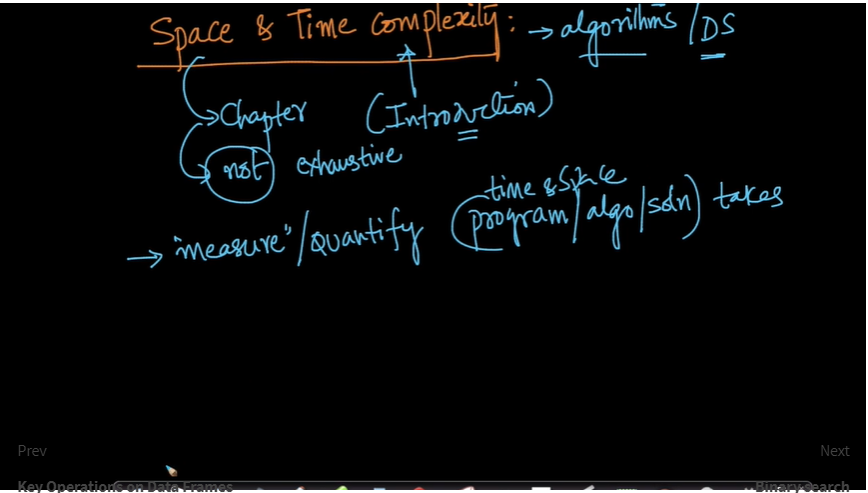 Space & Time Complexity: → algorithms / DS
→ Chapter (Introduction)
→ not exhaustive
time & space
→ "measure"/quantify (program/algo/soln) takes
Prev Next
Key Operations on Data Frames Binary search